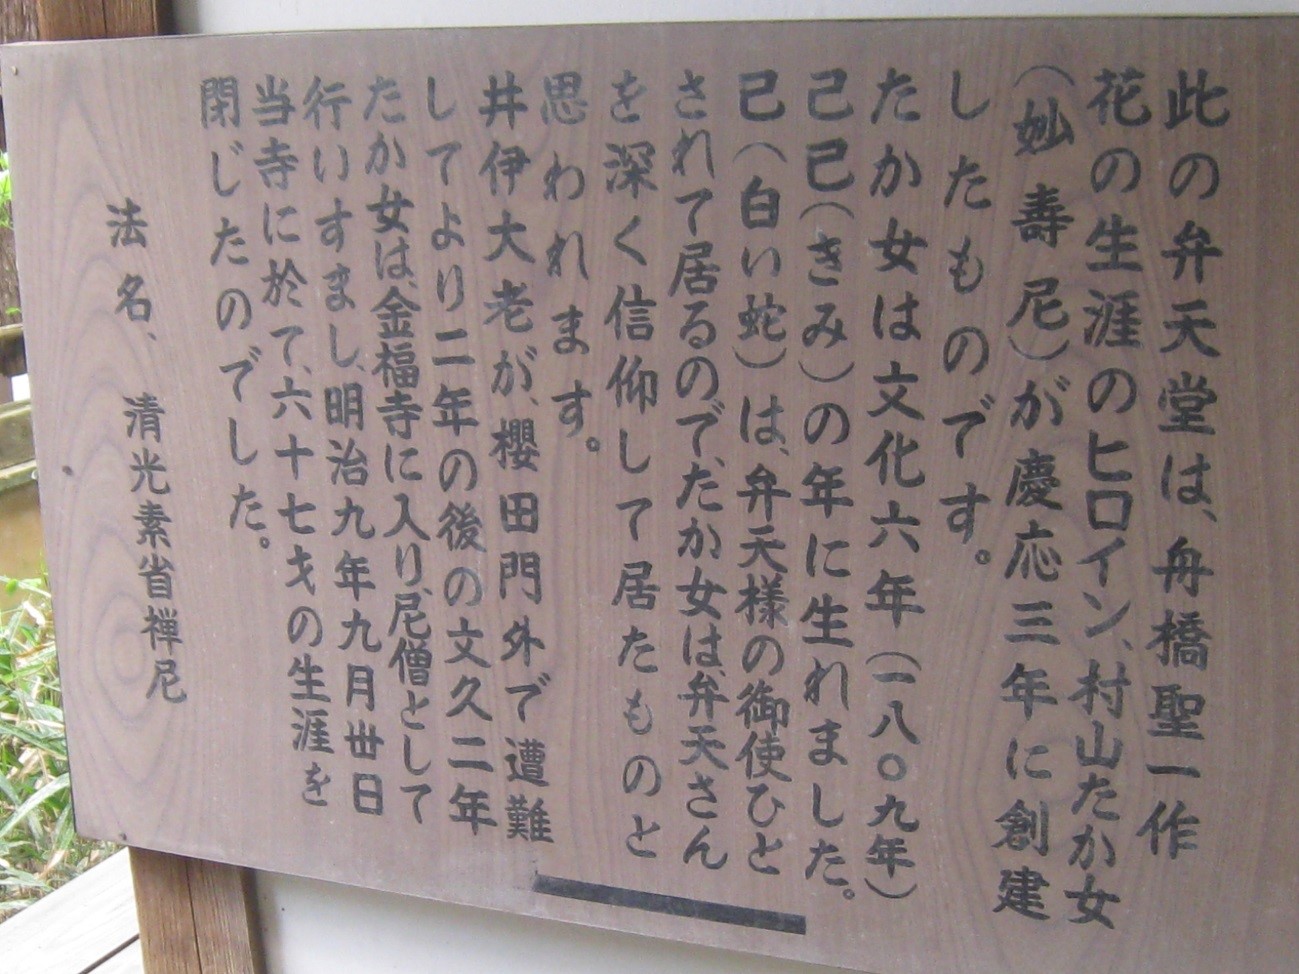 此の弁天堂は、舟橋聖一作
花の生涯のヒロイン、村山たか女
(妙壽尼)が慶応三年に創建
したものです。
たか女は文化六年(一八〇九年)
己巳(きみ)の年に生れました。
巳(白い蛇)は、弁天様の御使ひと
されて居るので、たか女は、弁天さん
を深く信仰して居たものと
思われます。
井伊大老が、櫻田門外で遭難
してより二年の後の文久二年
たか女は、金福寺に入り、尼僧として
行いすまし、明治九年九月丗日
当寺に於て、六十七才の生涯を
閉じたのでした。
法名、清光素省禅尼